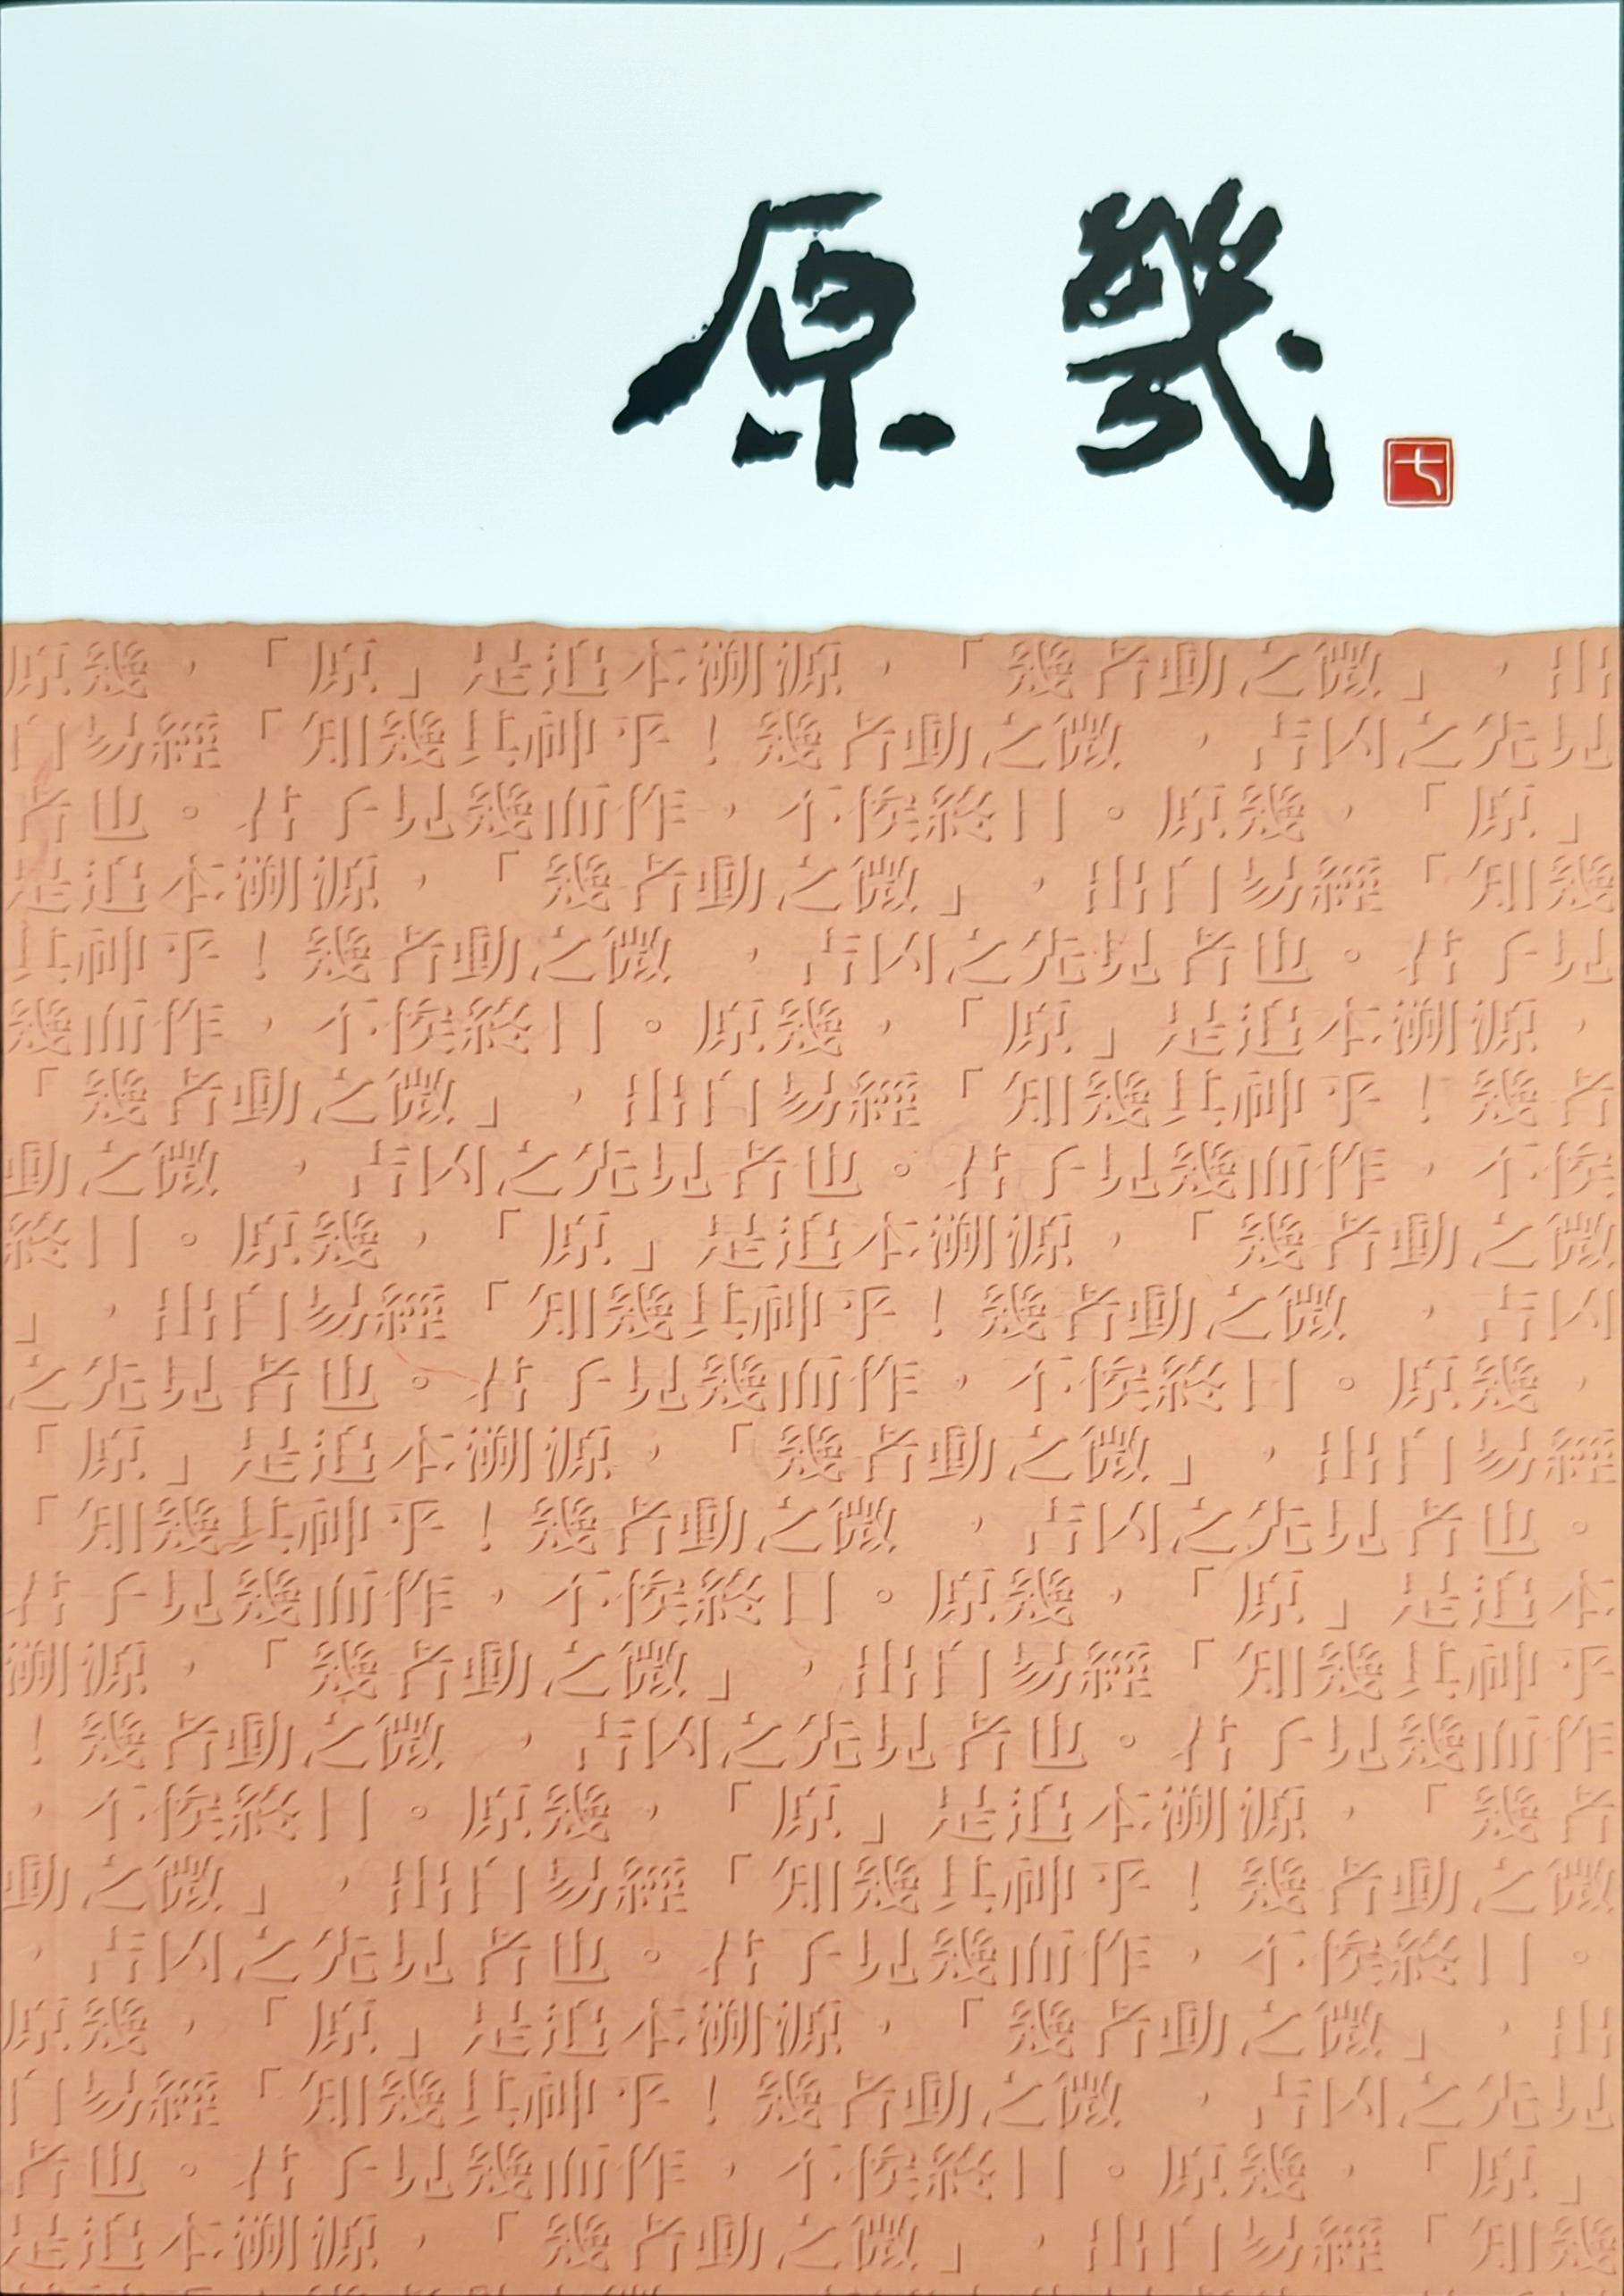 原幾
七
原幾，「原」是追本溯源，「幾者動之微」，出
自易經「知幾其神乎！幾者動之微 ，吉凶之先見
者也。君子見幾而作，不俟終日。原幾，「原」
是追本溯源，「幾者動之微」，出自易經「知幾
其神乎！幾者動之微 ，吉凶之先見者也。君子見
幾而作，不俟終日。原幾，「原」是追本溯源，
「幾者動之微」，出自易經「知幾其神乎！幾者
動之微 ，吉凶之先見者也。君子見幾而作，不俟
終日。原幾，「原」是追本溯源，「幾者動之微
」，出自易經「知幾其神乎！幾者動之微 ，吉凶
之先見者也。君子見幾而作，不俟終日。原幾，
「原」是追本溯源，「幾者動之微」，出自易經
「知幾其神乎！幾者動之微 ，吉凶之先見者也。
君子見幾而作，不俟終日。原幾，「原」是追本
溯源，「幾者動之微」，出自易經「知幾其神乎
！幾者動之微 ，吉凶之先見者也。君子見幾而作
，不俟終日。原幾，「原」是追本溯源，「幾者
動之微」，出自易經「知幾其神乎！幾者動之微
，吉凶之先見者也。君子見幾而作，不俟終日。
原幾，「原」是追本溯源，「幾者動之微」，出
自易經「知幾其神乎！幾者動之微 ，吉凶之先見
者也。君子見幾而作，不俟終日。原幾，「原」
是追本溯源，「幾者動之微」，出自易經「知幾